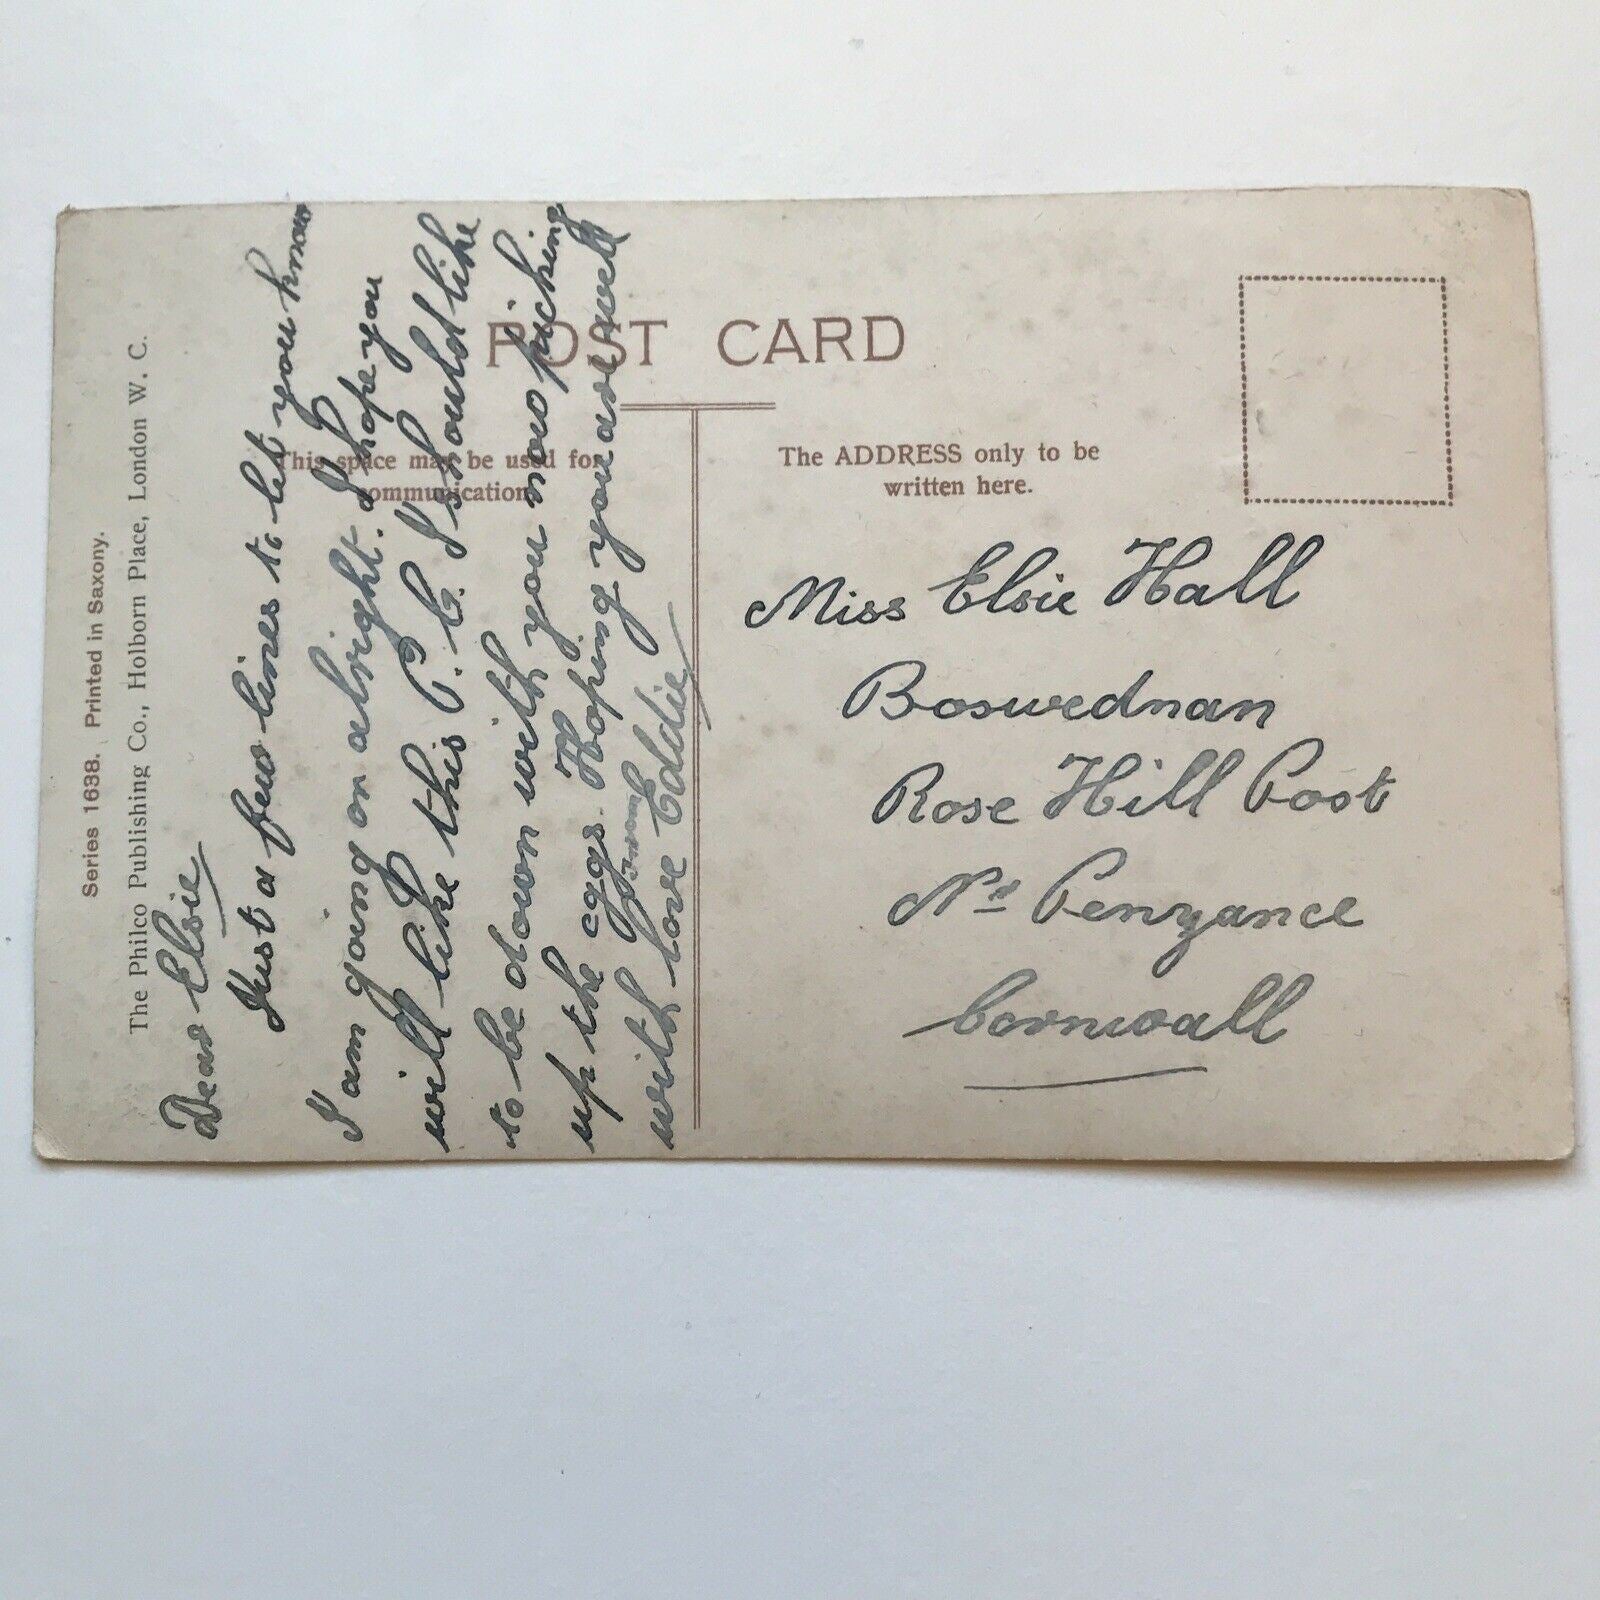 Series 1638. Printed in Saxony.
The Philco Publishing Co., Holborn Place, London W. C.
POST CARD
This space may be used for
communication
The ADDRESS only to be
written here.
Dear Elsie
Just a few lines to let you know
I am going on alright. I hope you
will like this P. C. I should like
to be down with you now picking
up the eggs. Hoping you are well
with love from Eddie
Miss Elsie Hall
Boswednan
Rose Hill Post
Nr Penzance
Cornwall